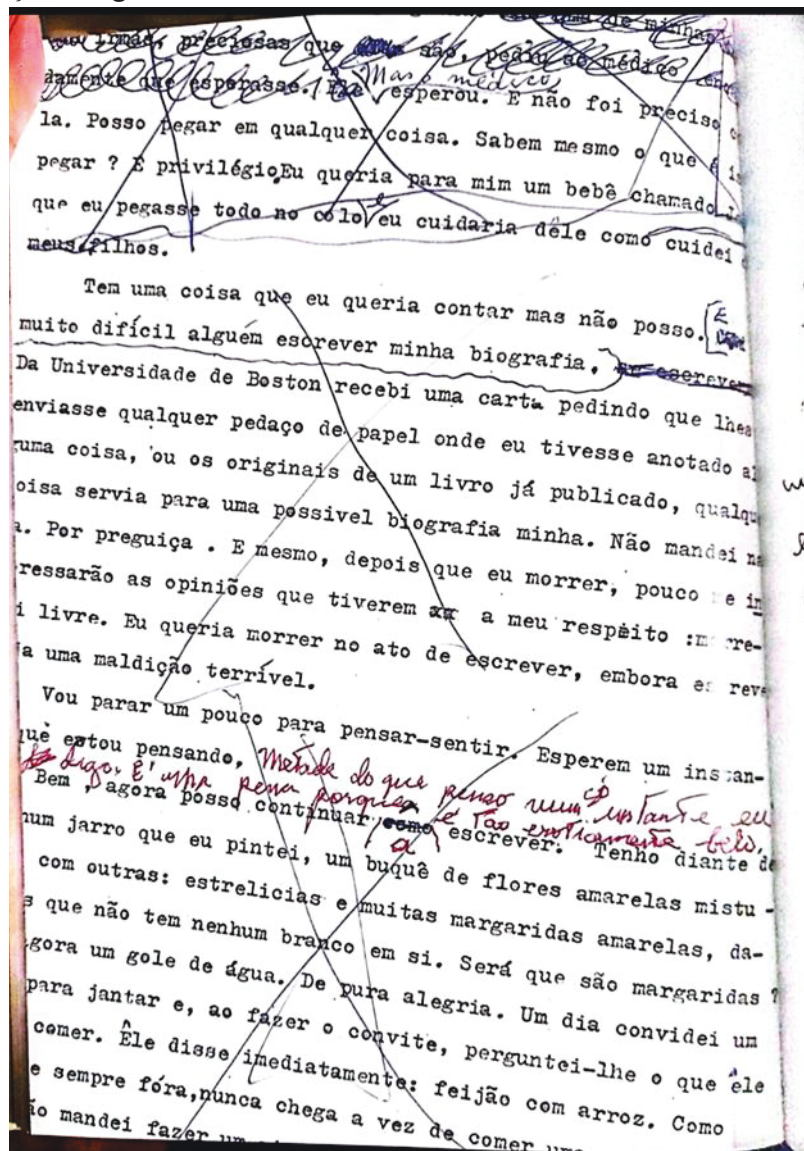 uma de minhas
irmãs, preciosas que são, pediu ao médico
damente que esperasse. Mas o médico esperou. E não foi preciso
la. Posso pegar em qualquer coisa. Sabem mesmo o que é
pegar ? É privilégio. Eu queria para mim um bebê chamado
que eu pegasse todo no colo e eu cuidaria dêle como cuidei
meus filhos.
Tem uma coisa que eu queria contar mas não posso. E
muito difícil alguém escrever minha biografia. escrever
Da Universidade de Boston recebi uma carta pedindo que lhes
enviasse qualquer pedaço de papel onde eu tivesse anotado al
guma coisa, ou os originais de um livro já publicado, qualqu
oisa servia para uma possivel biografia minha. Não mandei na
a. Por preguiça . E mesmo, depois que eu morrer, pouco me in
ressarão as opiniões que tiverem a meu respeito :morre-
i livre. Eu queria morrer no ato de escrever, embora es reve
ja uma maldição terrível.
Vou parar um pouco para pensar-sentir. Esperem um instan-
quê estou pensando, Metade do que penso num só instante eu
digo. É uma pena porque é tão eroticamente belo.
Bem , agora posso continuar a escrever. Tenho diante de
num jarro que eu pintei, um buquê de flores amarelas mistu -
com outras: estrelicias e muitas margaridas amarelas, da-
s que não tem nenhum branco em si. Será que são margaridas ?
gora um gole de água. De pura alegria. Um dia convidei um
para jantar e, ao fazer o convite, perguntei-lhe o que êle
comer. Êle disse imediatamente: feijão com arroz. Como
e sempre fóra,nunca chega a vez de comer
ão mandei fazer um